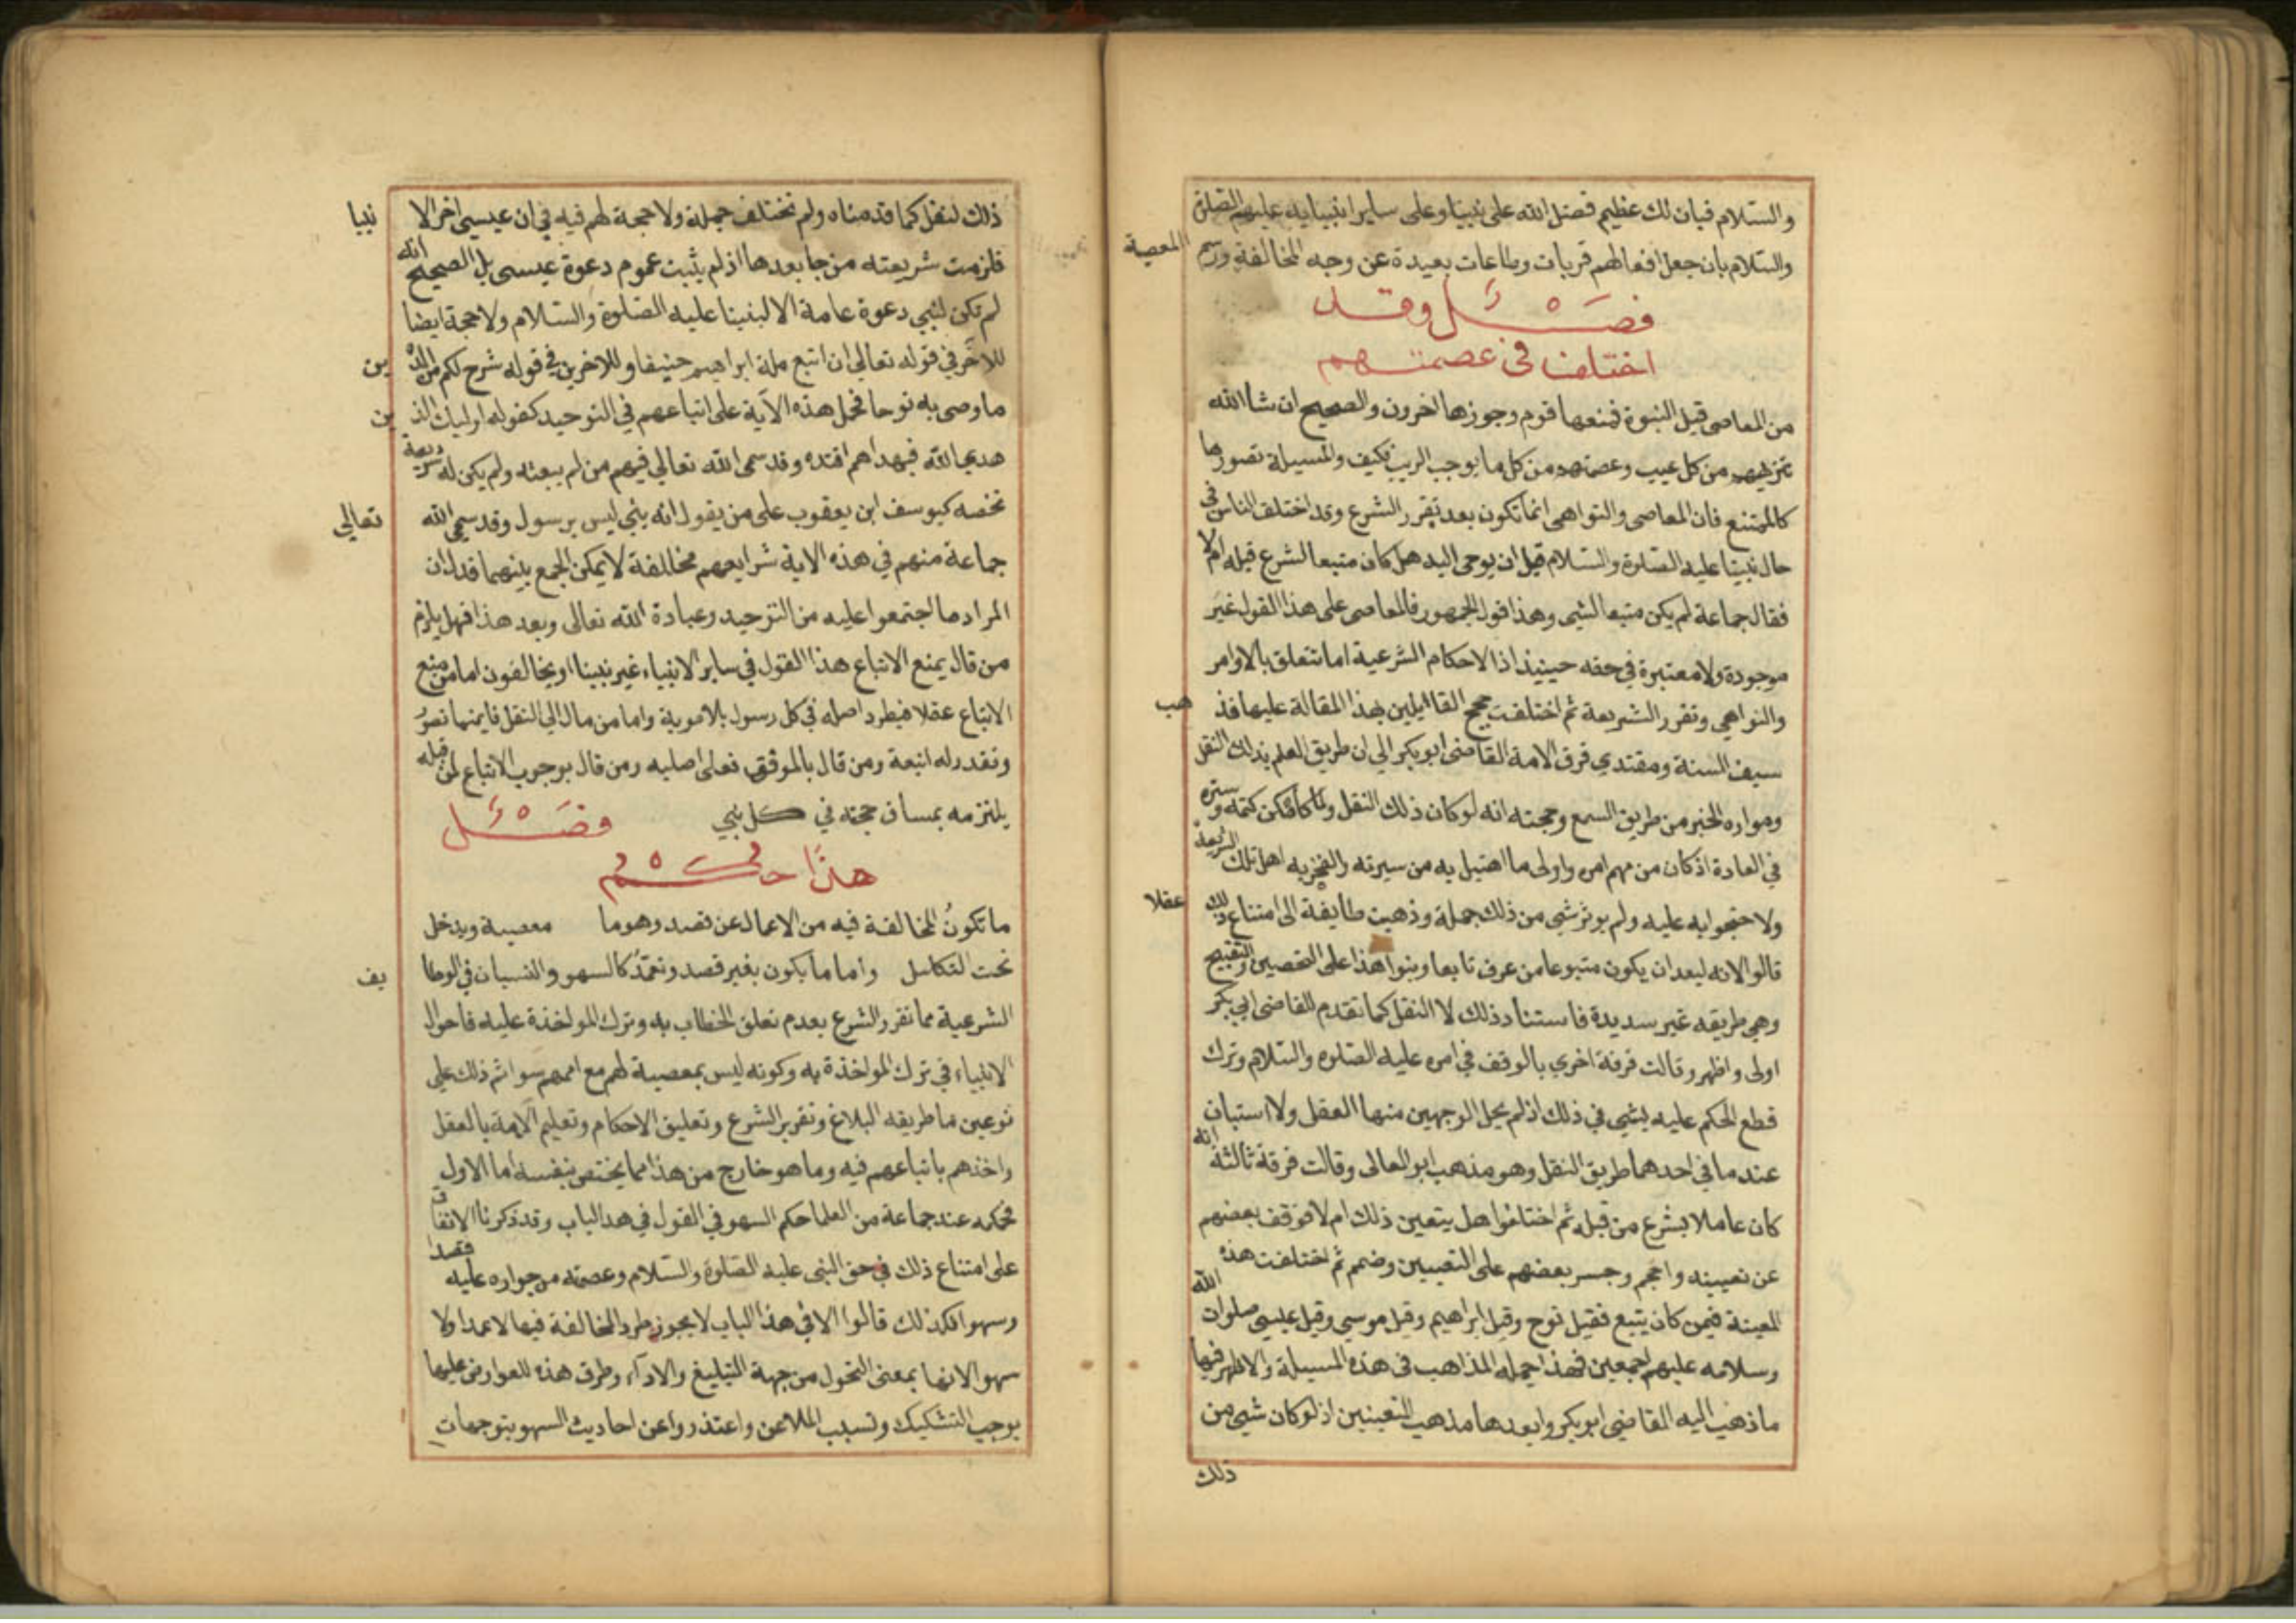 والسلام فبان لك عظيم فضل الله على نبينا وعلى ساير انبيايه عليهم الصلوة
والسلام بان جعل افعالهم قربات وطاعات بعيدة عن وجه المخالفة ورسم المعصية
فصل وقد
اختلف فى عصمتهم
من المعاصى قبل النبوة فمنعها قوم وجوزها اخرون والصحيح ان شا الله
تنزيههم من كل عيب وعصمتهم من كل ما يوجب الريب فكيف والمسيلة تصورها
كالممتنع فان المعاصى والنواهى انما تكون بعد تقرر الشرع وقد اختلف الناس فى
حال نبينا عليه الصلوة والسلام قبل ان يوحى اليه هل كان متبعا لشرع قبله ام لا
فقال جماعة لم يكن متبعا لشى وهذا قول الجمهور فالمعاصى على هذا القول غير
موجودة ولا معتبرة في حقه حينيذ اذ الاحكام الشرعية اما تتعلق بالاوامر
والنواهي وتقرر الشريعة ثم اختلفت حجج القاايلين بهذا المقالة عليها فذهب
سيف السنة ومقتدي فرق الامة القاضى ابو بكر الي ان طريق العلم بذلك النقل
وموارد الخبر من طريق السمع وحجته انه لو كان ذلك النقل ولما كا امكن كتمه وستره
في العادة اذ كان من مهم امره واولى ما اهتبل به من سيرته ولفخر به اهل تلك الشريعة
ولا حتجوا به عليه ولم يوثر شى من ذلك جملة وذهبت طايفة الى امتناع ذلك عقلا
قالوا لانه لبعد ان يكون متبوعا من عرف تابعا وبنوا هذا على التحسين والتقبيح
وهي طريقه غير سديدة فاستناد ذلك لا النقل كما تقدم للقاضى ابي بكر
اولى واظهر وقالت فرقة اخري بالوقف في امره عليه الصلوه والسلام وترك
قطع الحكم عليه بشيى في ذلك اذ لم يحل الوجهين منها العقل ولا استبان
عندها في احدهما طريق النقل وهو مذهب ابو العالى وقالت فرقة ثالثة انه
كان عاملا بشرع من قبله ثم اختلفوا هل يتعين ذلك ام لا فوقف بعضهم
عن تعيينه واحجم وجسر بعضهم على التعيين وضمم ثم اختلفت هذه
المعينة فيمن كان يتبع فقيل نوح وقيل ابراهيم وقيل موسى وقيل عيسى صلوات الله
وسلامه عليهم اجمعين فهذا جمله المذاهب فى هذه المسيلة والاظهر فيها
ما ذهب اليه القاضي ابو بكر وابعدها مذهب المتعينين اذ لو كان شى من
ذلك
ذلك لنقل كما قدمناه ولم تختلف جملة ولا حجة لهم فيه في ان عيسى اخر الا نبيا
فلزمت شريعته من جا بعدها اذ لم يثبت عموم دعوة عيسى بل الصحيح انه
لم تكن لنبي دعوة عامة الا لنبينا عليه الصلوة والسلام ولا حجة ايضا
للاخر في قوله تعالى ان اتبع ملة ابراهيم حنيفا وللاخرين في قوله شرع لكم من الدين
ما وصى به نوحا فحمل هذه الاية على اتباعهم في التوحيد كقوله اوليك الذين
هدى الله فبهداهم اقتده وقد سمى الله تعالى فيهم من لم يبعث ولم يكن له شريعة
تخصه كيوسف ابن يعقوب على من يقول انه نبي ليس برسول وقد سمى الله تعالي
جماعة منهم في هذه الاية شرايعهم مختلفة لا يمكن الجمع بينهما فدل ان
المراد ما اجتمعوا عليه من التوحيد وعبادة الله تعالى وبعد هذا فهل يلزم
من قال بمنع الاتباع هذا القول في ساير الانبياء غير نبينا او يخالفون اما من منع
الاتباع عقلا فيطرد اصله في كل رسول بلا مرية واما من مال الي النقل فايمنها تصور
وتقدر له اتبعة ومن قال بالموقف فعلى اصليه ومن قال بوجوب الاتباع لمن قبله
يلتزمه بمساق حجته في كل نبي فصل
هذا حكم
ما تكون المخالفة فيه من الاعمال عن قصد وهو ما معصية ويدخل
تحت التكليل واما ما يكون بغير قصد وتعمد كالسهو والنسيان في الوظايف
الشرعية مما تقرر الشرع بعدم تعلق الخطاب به وترك المواخذة عليه فاحوال
الانبياء في ترك المواخذة به وكونه ليس بمعصية لهم مع اممهم سوا ثم ذلك على
نوعين ما طريقه البلاغ وتقرير الشرع وتعليق الاحكام وتعليم الامة بالعقل
واخذهم باتباعهم فيه وما هو خارج من هذا مما يختص بنفسه اما الاول
فحكمه عند جماعة من العلما حكم السهو في القول في هد الباب وقد ذكرنا الاتفاق
على امتناع ذلك في حق النبى عليه الصلوة والسلام وعصمته من جوازه عليه قصدا
وسهوا فكذلك قالوا الافي هذا الباب لا يجوز طرد المخالفة فيها لا عمدا ولا
سهوا لانها بمعنى التحول من جهة التبليغ والادآء وطرق هذه العوارض عليها
يوجب التشكيك وتسبب الملاعن واعتذروا عن احاديث السهو بتوجهات